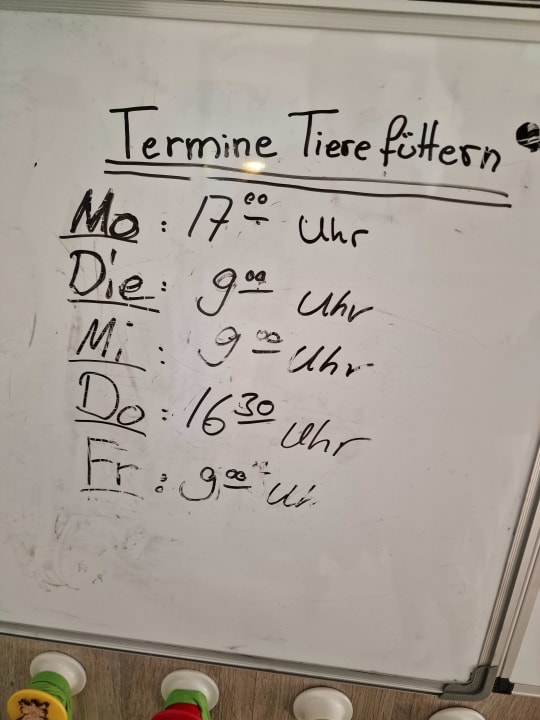 Termine Tiere füttern
Mo : 17⁰⁰ Uhr
Die : 9⁰⁰ Uhr
Mi : 9⁰⁰ Uhr
Do : 16³⁰ Uhr
Fr : 9⁰⁰